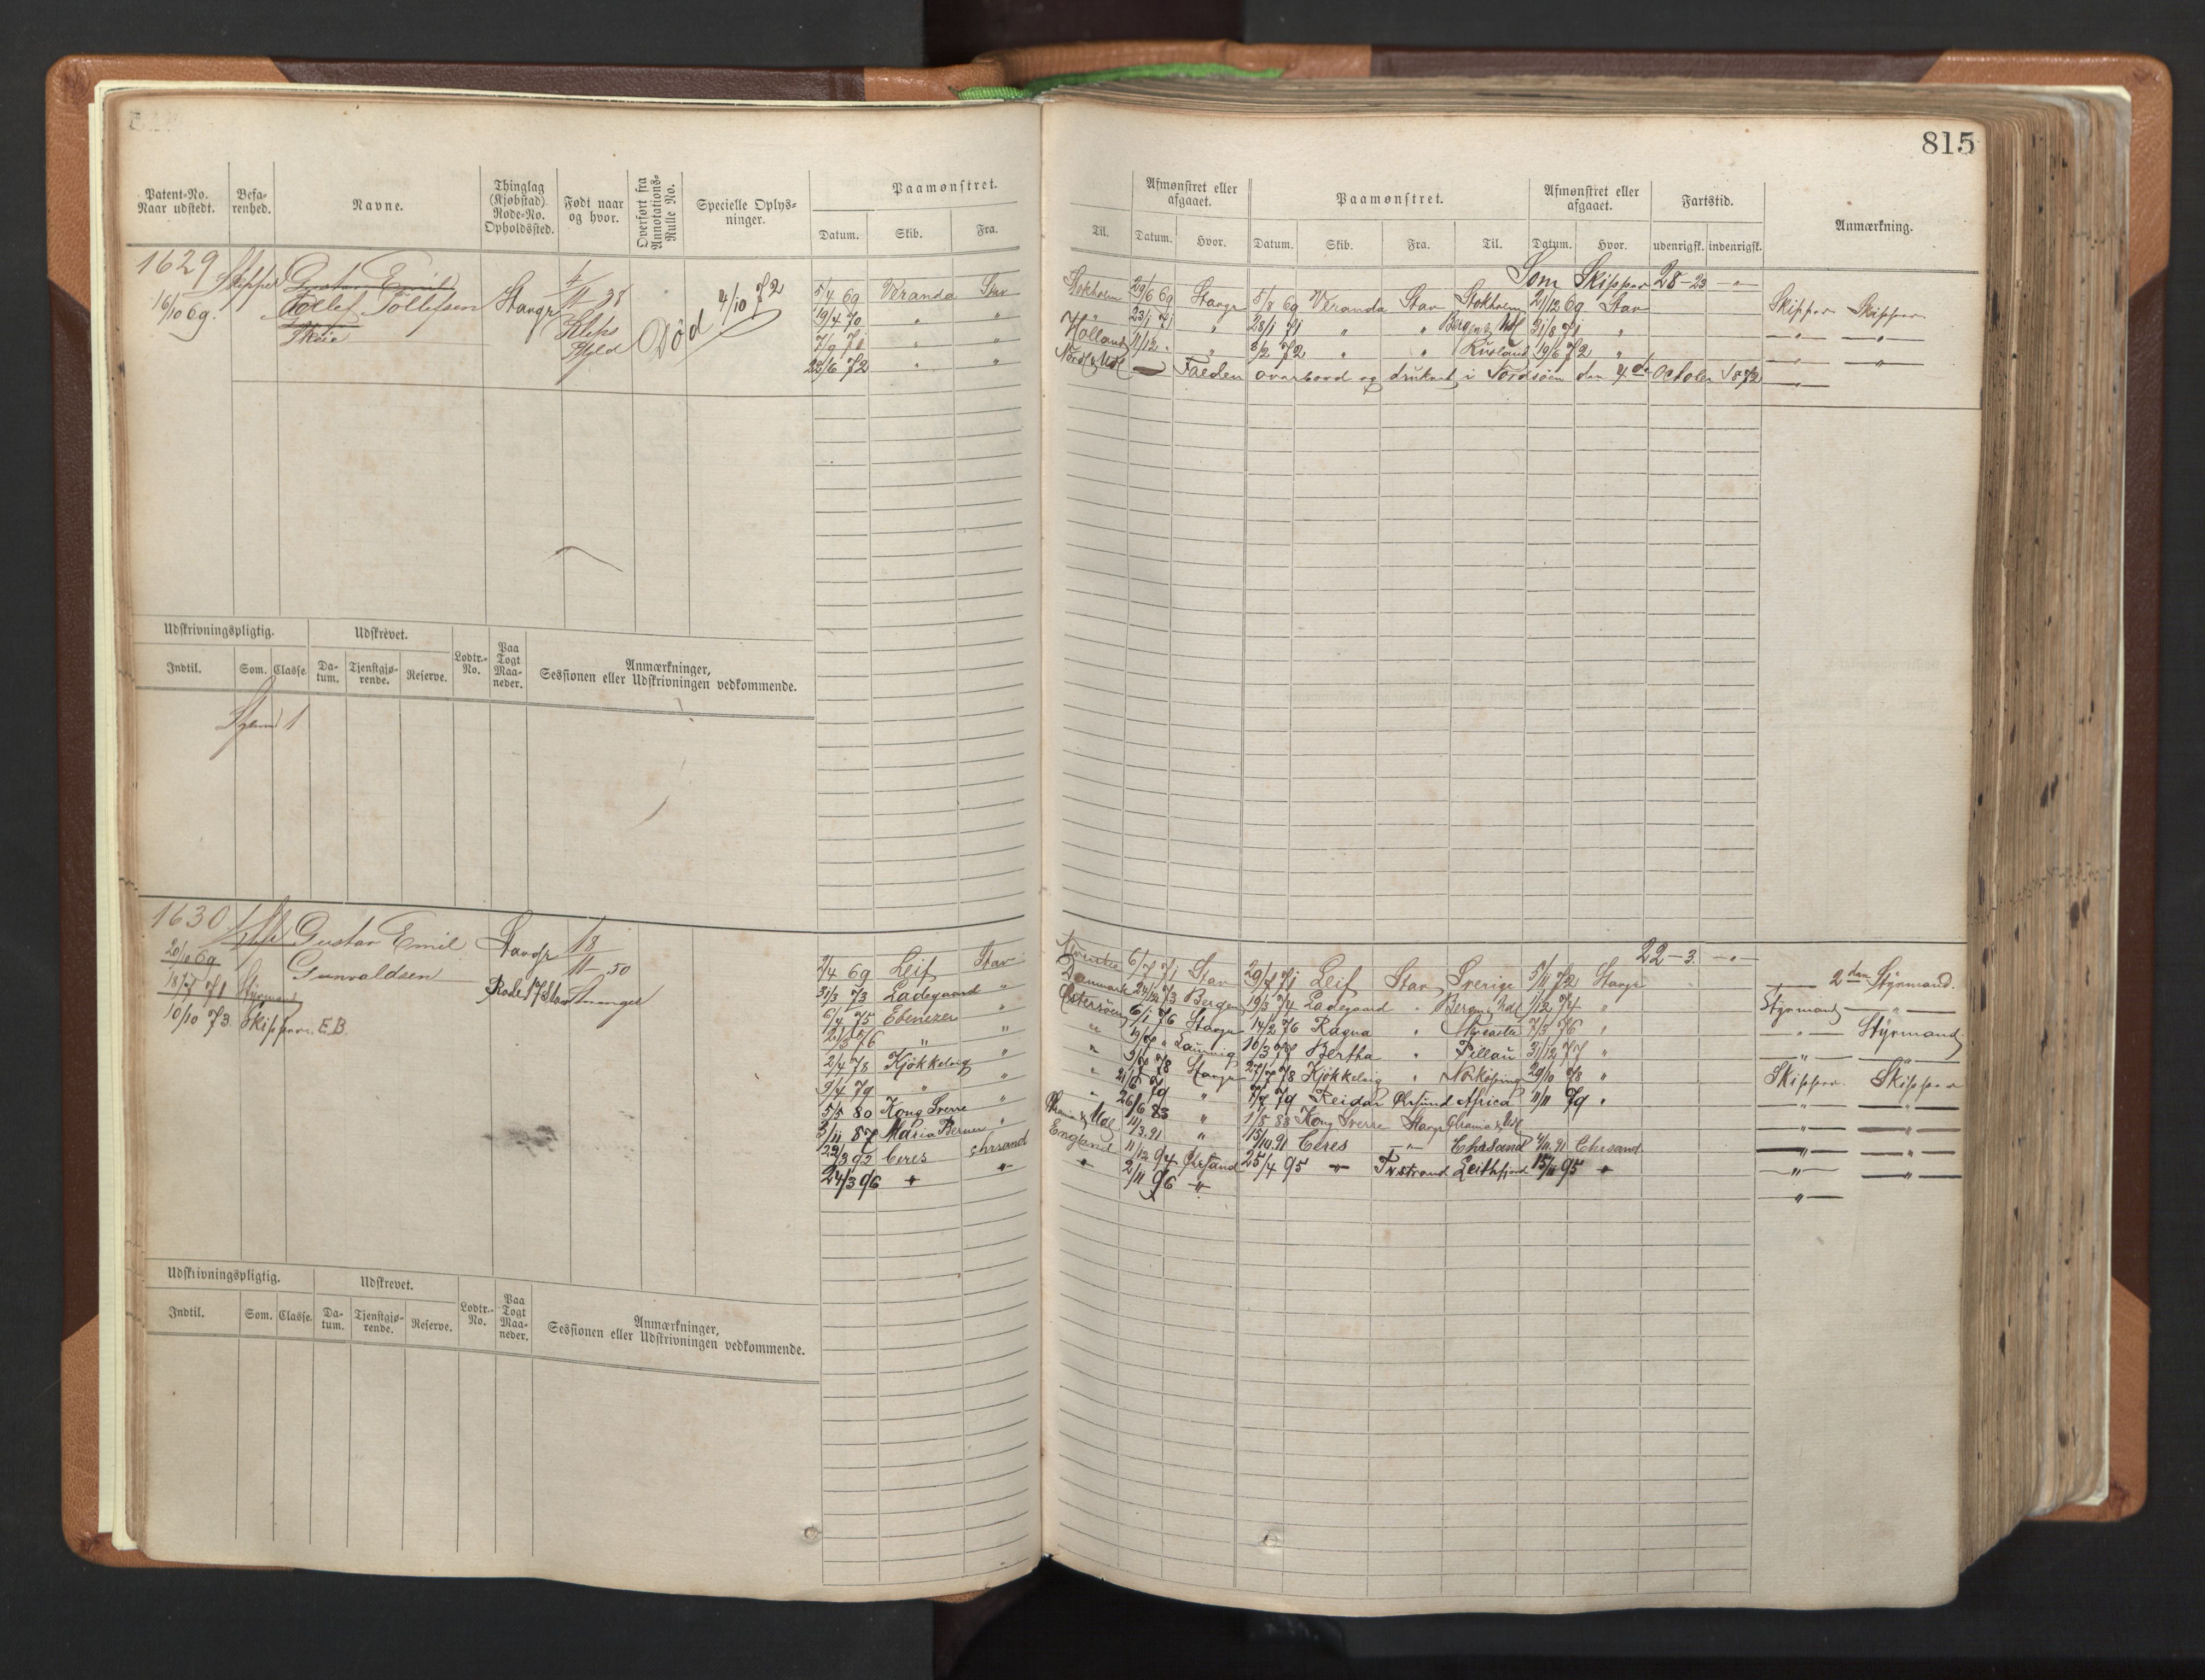 815
Patent-No. Naar udstedt.
Befarenhed.
Navne.
Thinglag (Kjøbstad) Rode-No. Opholdssted.
Født naar og hvor.
Overført fra Annotations-Rulle No.
Specielle Oplysninger.
Paamønstret.
Datum. Skib. Fra.
Til.
Afmønstret eller afgaaet.
Datum. Hvor.
Paamønstret.
Datum. Skib. Fra. Til.
Afmønstret eller afgaaet.
Datum. Hvor.
Fartstid.
udenrigsk. indenrigsk.
Anmærkning.
1629 Skipper Gustav Emil
16/10 69. Tollef Tollefsen Stavgr
Skeie
11 38
Død 4/10 72
Som Skipper 28-23 - " -
5/4 69 Veranda Stav Stokholm 29/6 69 Stavgr 5/8 69 Veranda Stav Stokholm 21/12 69 Stav Skipper Skipper
19/4 70 " " " 23/1 71 " 28/1 71 " " Bergen & Udl 31/8 71 " — " — — " —
7/9 71 " " Holland 11/12 " " 3/2 72 " " Rusland 19/6 72 " — " — — " —
22/6 72 " " Nords & Udl — Falden overbord og druknet i Nordsøen den 4de October 1872 — " —
Udskrivningspligtig. Udskrevet. Lodtr.-No. Paa Togt Maaneder. Anmærkninger, Sessionen eller Udskrivningen vedkommende.
Indtil. Som. Classe. Datum. Tjenstgjørende. Reserve.
1
1630 Gustav Emil Stavgr 18
20/10 69 Gunvaldsen 11 50
18/7 71 Styrmand Rode 17 Stav Stavanger
10/10 73. Skipper. E.B.
22-3. - " -
2/4 69 Leif Stav 6/7 71 Stav 29/7 71 Leif Stav Sverige 5/11 72 Stavgr — 2den Styrmand.
31/3 73 Ladegaard " Danmark 24/12 73 Bergen 19/3 74 Ladegaard " Bergen & Udl 1/12 74 " Styrmand — " —
6/4 75 Ebenezer " Østersøen 6/1 76 Stavgr 14/2 76 Ragna " 7/3 76 " — " — Styrmand
21/3 76 " " " " 16/3 77 Bertha " Pillau 31/12 77 " — " — — " —
2/4 78 Kjøkkelvig " " 78 Stavgr 27/7 78 Kjøkkelvig " Norkøping 29/10 78 " Skipper. Skipper
9/4 79 " " " 21/6 79 " 7/7 79 Reidar Africa 11/11 79 " — " — — " —
5/5 80 Kong Sverre " 26/6 83 " 1/8 83 Kong Sverre Stavgr Chrania & Udl — " — — " —
3/11 87 Maria Berner " Chrania & Udl 11/3.91 " 15/10.91 Ceres — " — Chrsand 4/11.91 Chrsand — " — — " —
22/3 92 Ceres Chrsand England 11/12 94 Chrsand 25/4 95 — " — Tvestrand Leithfjord 15/11 95 " — " — — " —
24/3 96 — " — — " — " 2/11 96 — " — — " —
Udskrivningspligtig. Udskrevet. Lodtr.-No. Paa Togt Maaneder. Anmærkninger, Sessionen eller Udskrivningen vedkommende.
Indtil. Som. Classe. Datum. Tjenstgjørende. Reserve.